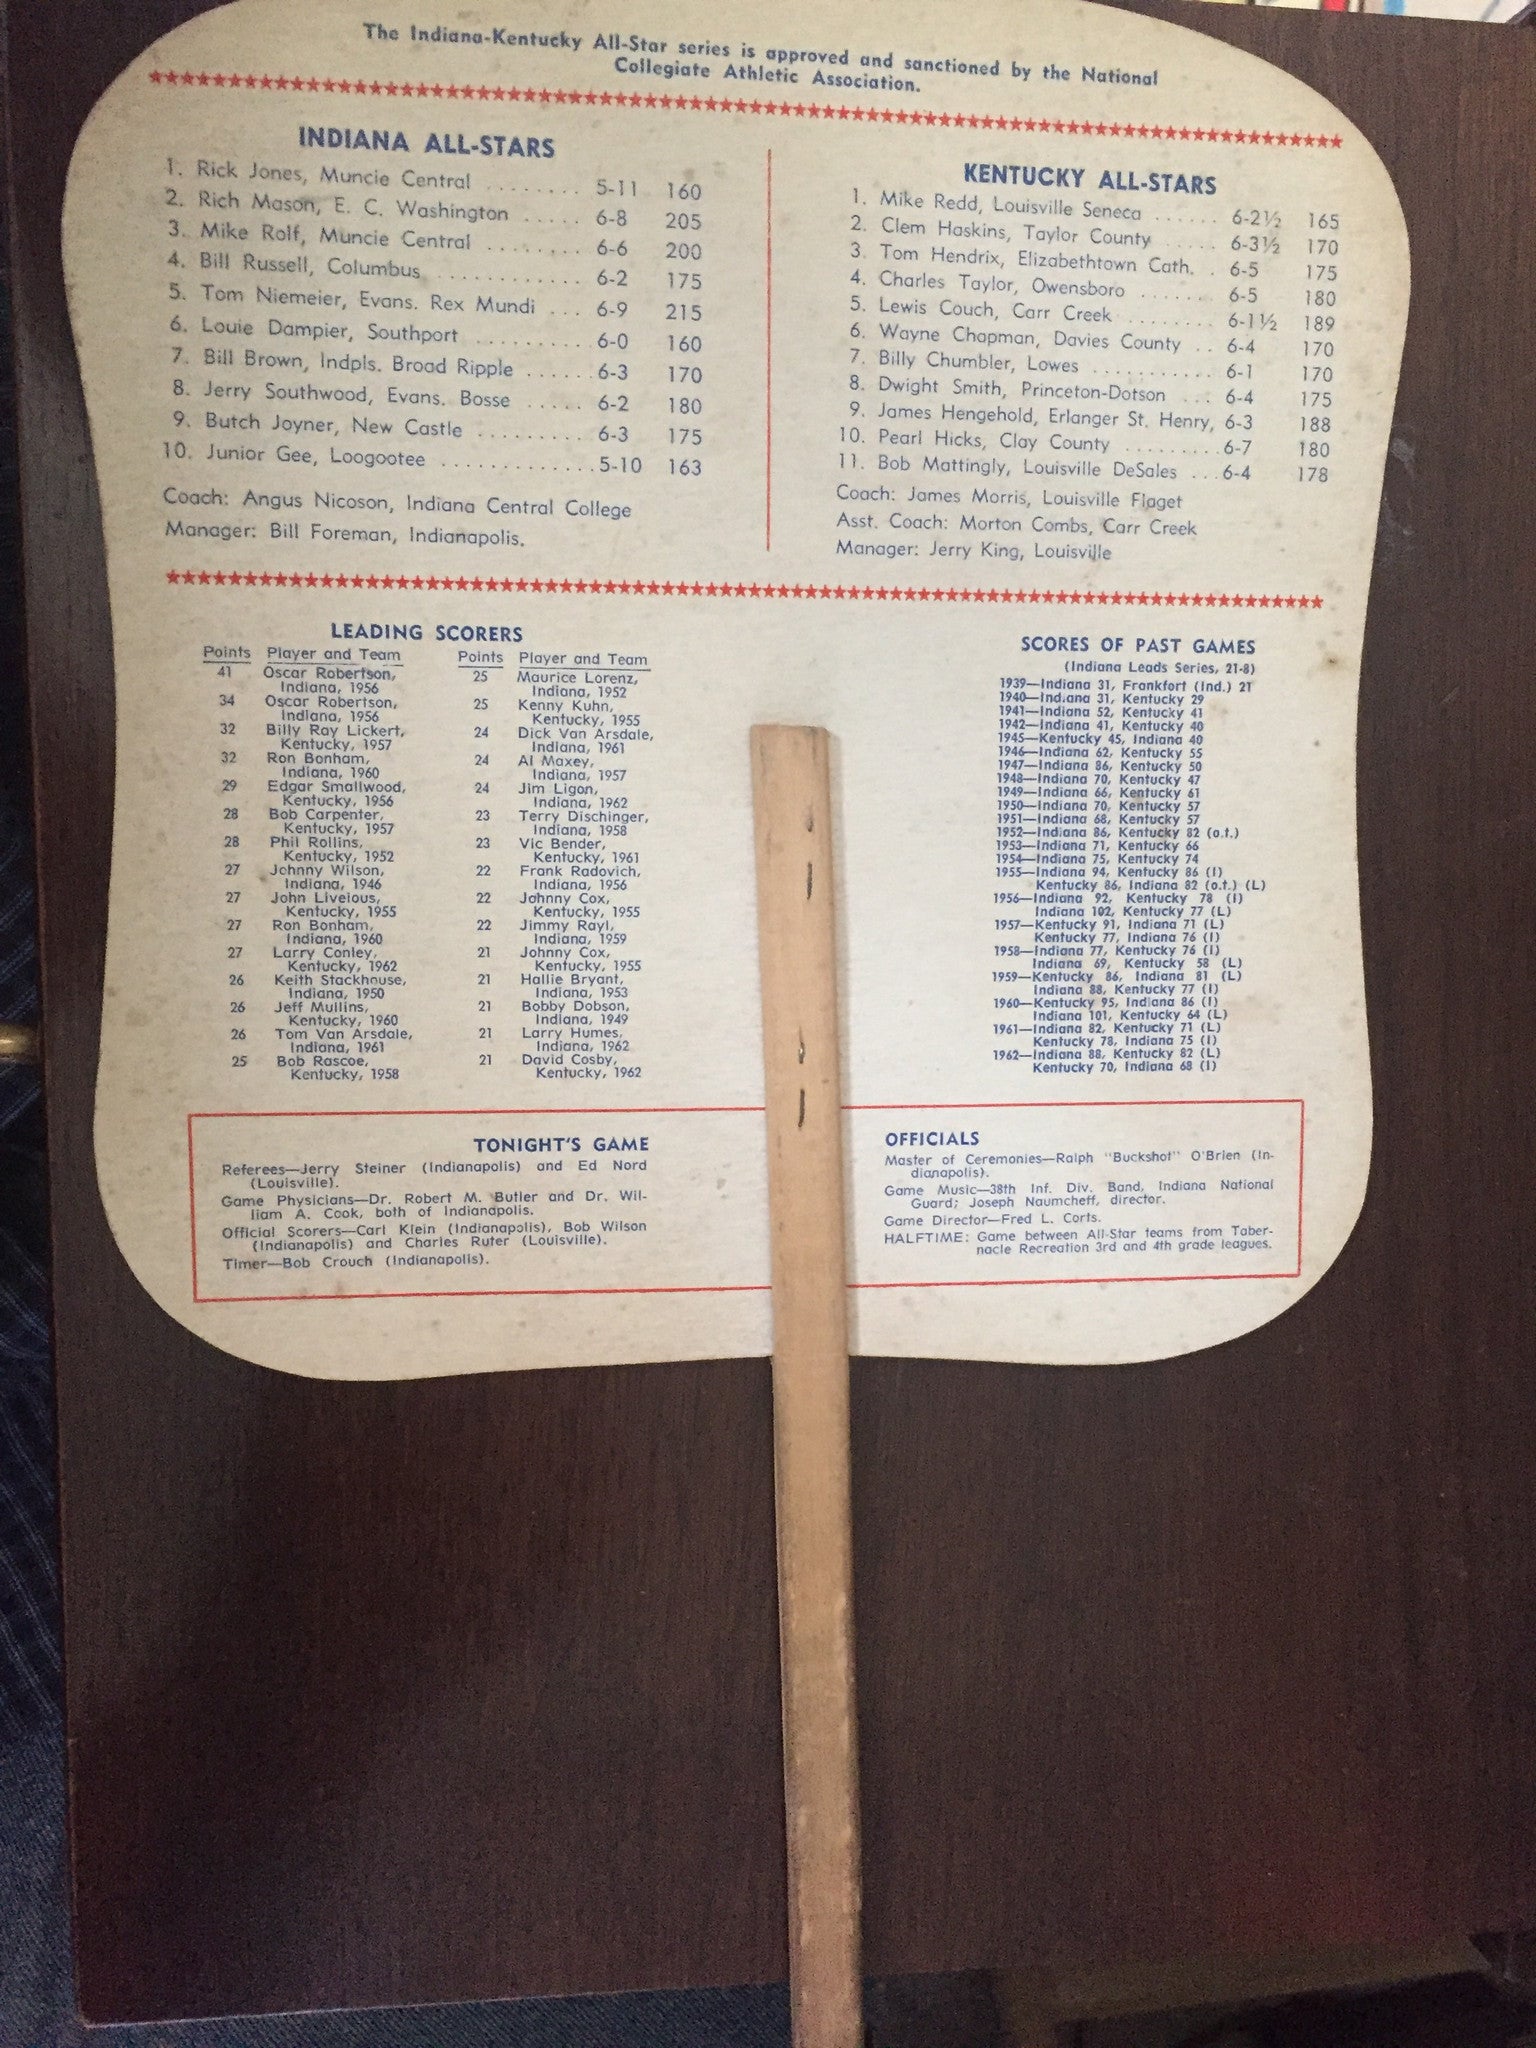 The Indiana-Kentucky All-Star series is approved and sanctioned by the National
Collegiate Athletic Association.
INDIANA ALL-STARS
1. Rick Jones, Muncie Central ........ 5-11 160
2. Rich Mason, E. C. Washington ..... 6-8 205
3. Mike Rolf, Muncie Central ........ 6-6 200
4. Bill Russell, Columbus .......... 6-2 175
5. Tom Niemeier, Evans. Rex Mundi ... 6-9 215
6. Louie Dampier, Southport .......... 6-0 160
7. Bill Brown, Indpls. Broad Ripple ...... 6-3 170
8. Jerry Southwood, Evans. Bosse ..... 6-2 180
9. Butch Joyner, New Castle ......... 6-3 175
10. Junior Gee, Loogootee ............. 5-10 163
Coach: Angus Nicoson, Indiana Central College
Manager: Bill Foreman, Indianapolis.
KENTUCKY ALL-STARS
1. Mike Redd, Louisville Seneca ...... 6-2½ 165
2. Clem Haskins, Taylor County ..... 6-3½ 170
3. Tom Hendrix, Elizabethtown Cath. . 6-5 175
4. Charles Taylor, Owensboro ...... 6-5 180
5. Lewis Couch, Carr Creek ........ 6-1½ 189
6. Wayne Chapman, Davies County .. 6-4 170
7. Billy Chumbler, Lowes ........... 6-1 170
8. Dwight Smith, Princeton-Dotson ... 6-4 175
9. James Hengehold, Erlanger St. Henry, 6-3 188
10. Pearl Hicks, Clay County ......... 6-7 180
11. Bob Mattingly, Louisville DeSales ... 6-4 178
Coach: James Morris, Louisville Flaget
Asst. Coach: Morton Combs, Carr Creek
Manager: Jerry King, Louisville
LEADING SCORERS
Points Player and Team
41 Oscar Robertson,
Indiana, 1956
34 Oscar Robertson,
Indiana, 1956
32 Billy Ray Lickert,
Kentucky, 1957
32 Ron Bonham,
Indiana, 1960
29 Edgar Smallwood,
Kentucky, 1956
28 Bob Carpenter,
Kentucky, 1957
28 Phil Rollins,
Kentucky, 1952
27 Johnny Wilson,
Indiana, 1946
27 John Liveious,
Kentucky, 1955
27 Ron Bonham,
Indiana, 1960
27 Larry Conley,
Kentucky, 1962
26 Keith Stackhouse,
Indiana, 1950
26 Jeff Mullins,
Kentucky, 1960
26 Tom Van Arsdale,
Indiana, 1961
25 Bob Rascoe,
Kentucky, 1958
Points Player and Team
25 Maurice Lorenz,
Indiana, 1952
25 Kenny Kuhn,
Kentucky, 1955
24 Dick Van Arsdale,
Indiana, 1961
24 Al Maxey,
Indiana, 1957
24 Jim Ligon,
Indiana, 1962
23 Terry Dischinger,
Indiana, 1958
23 Vic Bender,
Kentucky, 1961
22 Frank Radovich,
Indiana, 1956
22 Johnny Cox,
Kentucky, 1955
22 Jimmy Rayl,
Indiana, 1959
21 Johnny Cox,
Kentucky, 1955
21 Hallie Bryant,
Indiana, 1953
21 Bobby Dobson,
Indiana, 1949
21 Larry Humes,
Indiana, 1962
21 David Cosby,
Kentucky, 1962
SCORES OF PAST GAMES
(Indiana Leads Series, 21-8)
1939—Indiana 31, Frankfort (Ind.) 21
1940—Indiana 31, Kentucky 29
1941—Indiana 52, Kentucky 41
1942—Indiana 41, Kentucky 40
1945—Kentucky 45, Indiana 40
1946—Indiana 62, Kentucky 55
1947—Indiana 86, Kentucky 50
1948—Indiana 70, Kentucky 47
1949—Indiana 66, Kentucky 61
1950—Indiana 70, Kentucky 57
1951—Indiana 68, Kentucky 57
1952—Indiana 86, Kentucky 82 (o.t.)
1953—Indiana 71, Kentucky 66
1954—Indiana 75, Kentucky 74
1955—Indiana 94, Kentucky 86 (I)
Kentucky 86, Indiana 82 (o.t.) (L)
1956—Indiana 92, Kentucky 78 (I)
Indiana 102, Kentucky 77 (L)
1957—Kentucky 91, Indiana 71 (L)
Kentucky 77, Indiana 76 (I)
1958—Indiana 77, Kentucky 76 (I)
Indiana 69, Kentucky 58 (L)
1959—Kentucky 86, Indiana 81 (L)
Indiana 88, Kentucky 77 (I)
1960—Kentucky 95, Indiana 86 (I)
Indiana 101, Kentucky 64 (L)
1961—Indiana 82, Kentucky 71 (L)
Kentucky 78, Indiana 75 (I)
1962—Indiana 88, Kentucky 82 (L)
Kentucky 70, Indiana 68 (I)
TONIGHT'S GAME
Referees—Jerry Steiner (Indianapolis) and Ed Nord
(Louisville).
Game Physicians—Dr. Robert M. Butler and Dr. Wil-
liam A. Cook, both of Indianapolis.
Official Scorers—Carl Klein (Indianapolis), Bob Wilson
(Indianapolis) and Charles Ruter (Louisville).
Timer—Bob Crouch (Indianapolis).
OFFICIALS
Master of Ceremonies—Ralph "Buckshot" O'Brien (In-
dianapolis).
Game Music—38th Inf. Div. Band, Indiana National
Guard; Joseph Naumcheff, director.
Game Director—Fred L. Corts.
HALFTIME: Game between All-Star teams from Taber-
nacle Recreation 3rd and 4th grade leagues.